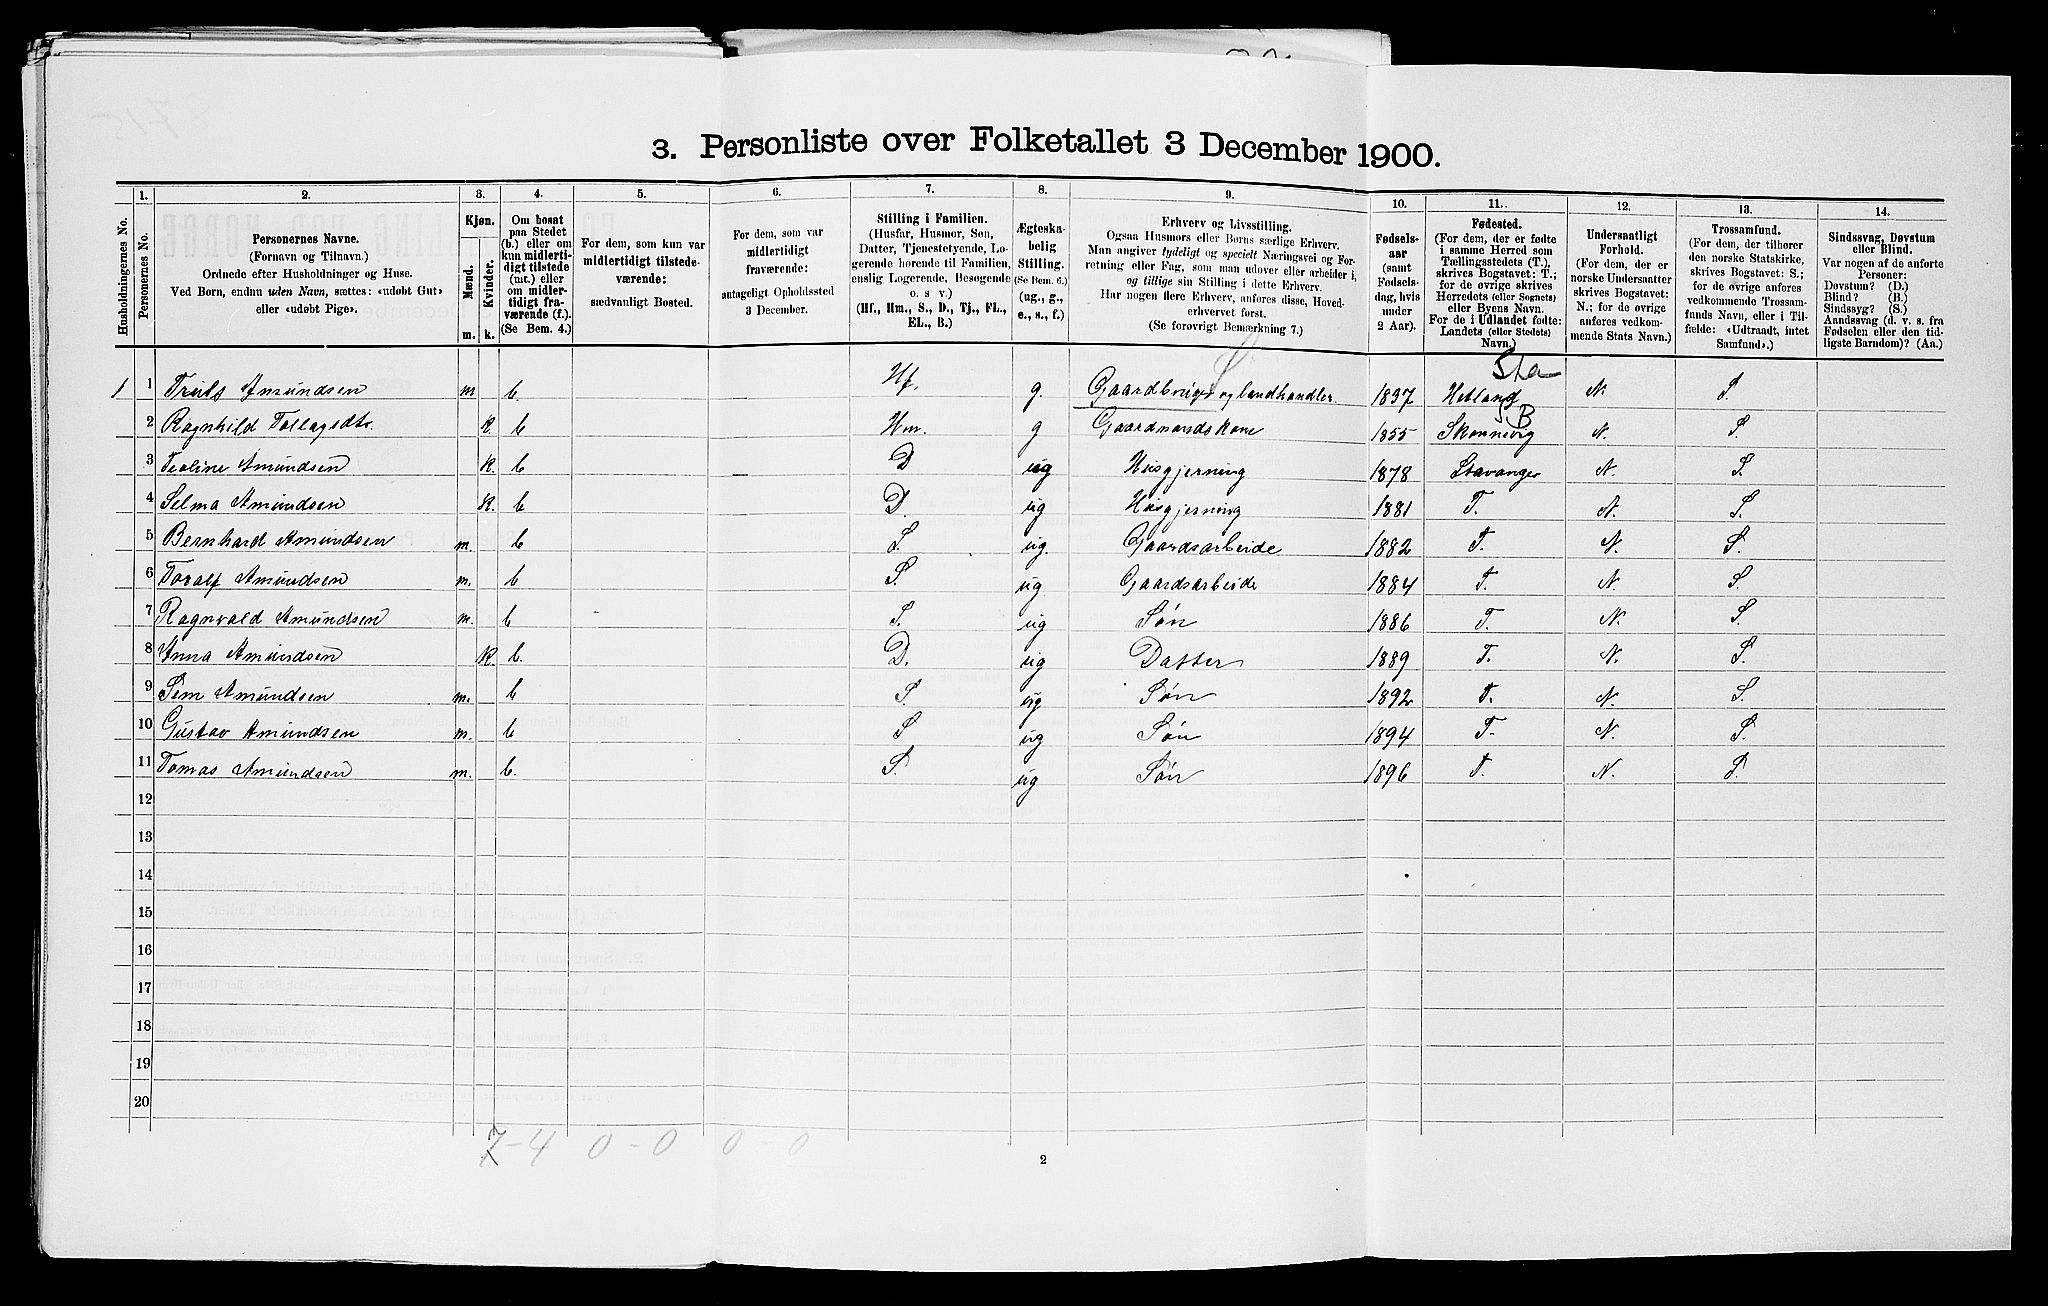 3. Personliste over Folketallet 3 December 1900.
Husholdningernes No.
1.
Personernes No.
2.
Personernes Navne.
(Fornavn og Tilnavn.)
Ordnede efter Husholdninger og Huse.
Ved Børn, endnu uden Navn, sættes: «udøbt Gut»
eller «udøbt Pige».
3.
Kjøn.
Mænd.
Kvinder.
m.
k.
4.
Om bosat
paa Stedet
(b.) eller om
kun midlerti-
digt tilstede
(mt.) eller
om midler-
tidigt fra-
værende (f.).
(Se Bem. 4.)
5.
For dem, som kun var
midlertidigt tilstede-
værende:
sædvanligt Bosted.
6.
For dem, som var
midlertidigt
fraværende:
antageligt Opholdssted
3 December.
7.
Stilling i Familien.
(Husfar, Husmor, Søn,
Datter, Tjenestetyende, Lo-
gerende hørende til Familien,
enslig Logerende, Besøgende
o. s v.)
(Hf., Hm., S., D., Tj., FL.,
EL., B.)
8.
Ægteska-
belig
Stilling.
(Se Bem. 6.)
(ug., g.,
e., s., f.)
9.
Erhverv og Livsstilling.
Ogsaa Husmors eller Børns særlige Erhverv.
Man angiver tydeligt og specielt Næringsvei og For-
retning eller Fag, som man udøver eller arbeider i,
og tillige sin Stilling i dette Erhverv.
Har nogen flere Erhverv, anføres disse, Hoved-
erhvervet først.
(Se forøvrigt Bemærkning 7.)
10.
Fødsels-
aar
(samt
Fødsels-
dag, hvis
under
2 Aar).
11.
Fødested.
(For dem, der er fødte
i samme Herred som
Tællingsstedets (T.),
skrives Bogstavet: T.;
for de øvrige skrives
Herredets (eller Sognets)
eller Byens Navn.
For de i Udlandet fødte:
Landets (eller Stedets)
Navn.)
12.
Undersaatligt
Forhold.
(For dem, der er
norske Undersaatter
skrives Bogstavet:
N.; for de øvrige
anføres vedkom-
mende Stats Navn.)
13.
Trossamfund.
(For dem, der tilhører
den norske Statskirke,
skrives Bogstavet: S.;
for de øvrige anføres
vedkommende Trossam-
funds Navn, eller i Til-
fælde: «Udtraadt, intet
Samfund».)
14.
Sindssvag, Døvstum
eller Blind.
Var nogen af de anførte
Personer:
Døvstum? (D.)
Blind? (B.)
Sindssyg? (S.)
Aandssvag (d. v. s. fra
Fødselen eller den tid-
ligste Barndom)? (Aa.)
Sta
1 1 Truls Amundsen m b. Hf. g. Gaardbruger og landhandler. 1837 Hetland N. S.
S B
2 Ragnhild Tollagsdtr. K. b Hm. g Gaardmandskone 1855 Skonnevig N. S.
3 Teoline Amundsen K. b D ug Husgjerning 1878 Stavanger N. S.
4 Selma Amundsen K. b D. ug Husgjerning 1881 T. N. S.
5 Bernhard Amundsen m. b S. ug. Gaardsarbeide 1882 T. N. S.
6 Toralf Amundsen m. b S ug Gaardsarbeide 1884 T. N. S.
7 Ragnvald Amundsen m. b S. ug Søn 1886 T. N. S.
8 Anna Amundsen K. b. D. ug Datter 1889 T. N. S.
9 Sem Amundsen m. b S ug Søn 1892 T. N. S.
10 Gustav Amundsen m. b S ug Søn 1894 T. N. S.
11 Tomas Amundsen m. b. S. ug Søn 1896 T. N. S.
12
13
14
15
16
17
18
19
20
7-4 0-0 0-0
2